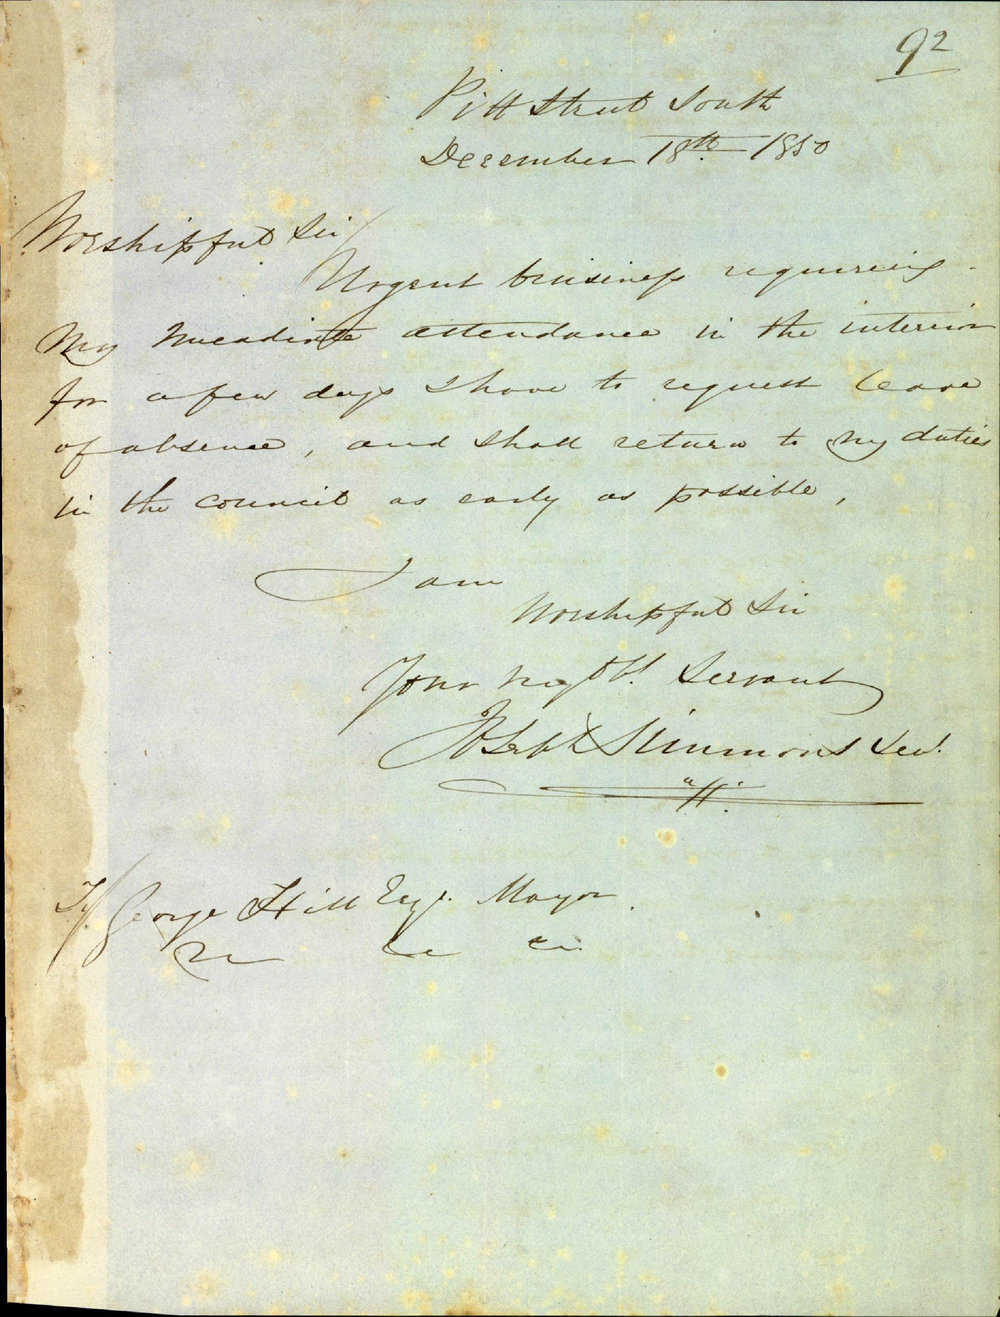 92
Pitt Street South
December 18th 1850
Worshipful Sir/
Urgent business requireing
my meadiate attendance in the interior
for a few days I have to request leave
of absence, and shall return to my duties
in the council as early as possible,
I am
Worshipful Sir
Your my Obt. Servant
Joseph Simmons Sen.
To/ George Hill Esqe. Mayor.
&c &c &c.